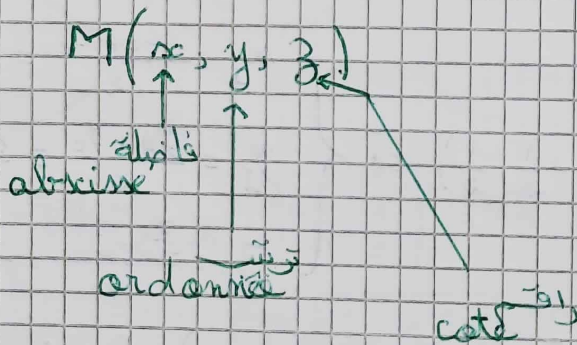 M(x, y, z)
فاصلة
abscisse
ترتيب
ordonnée
راقم
cote